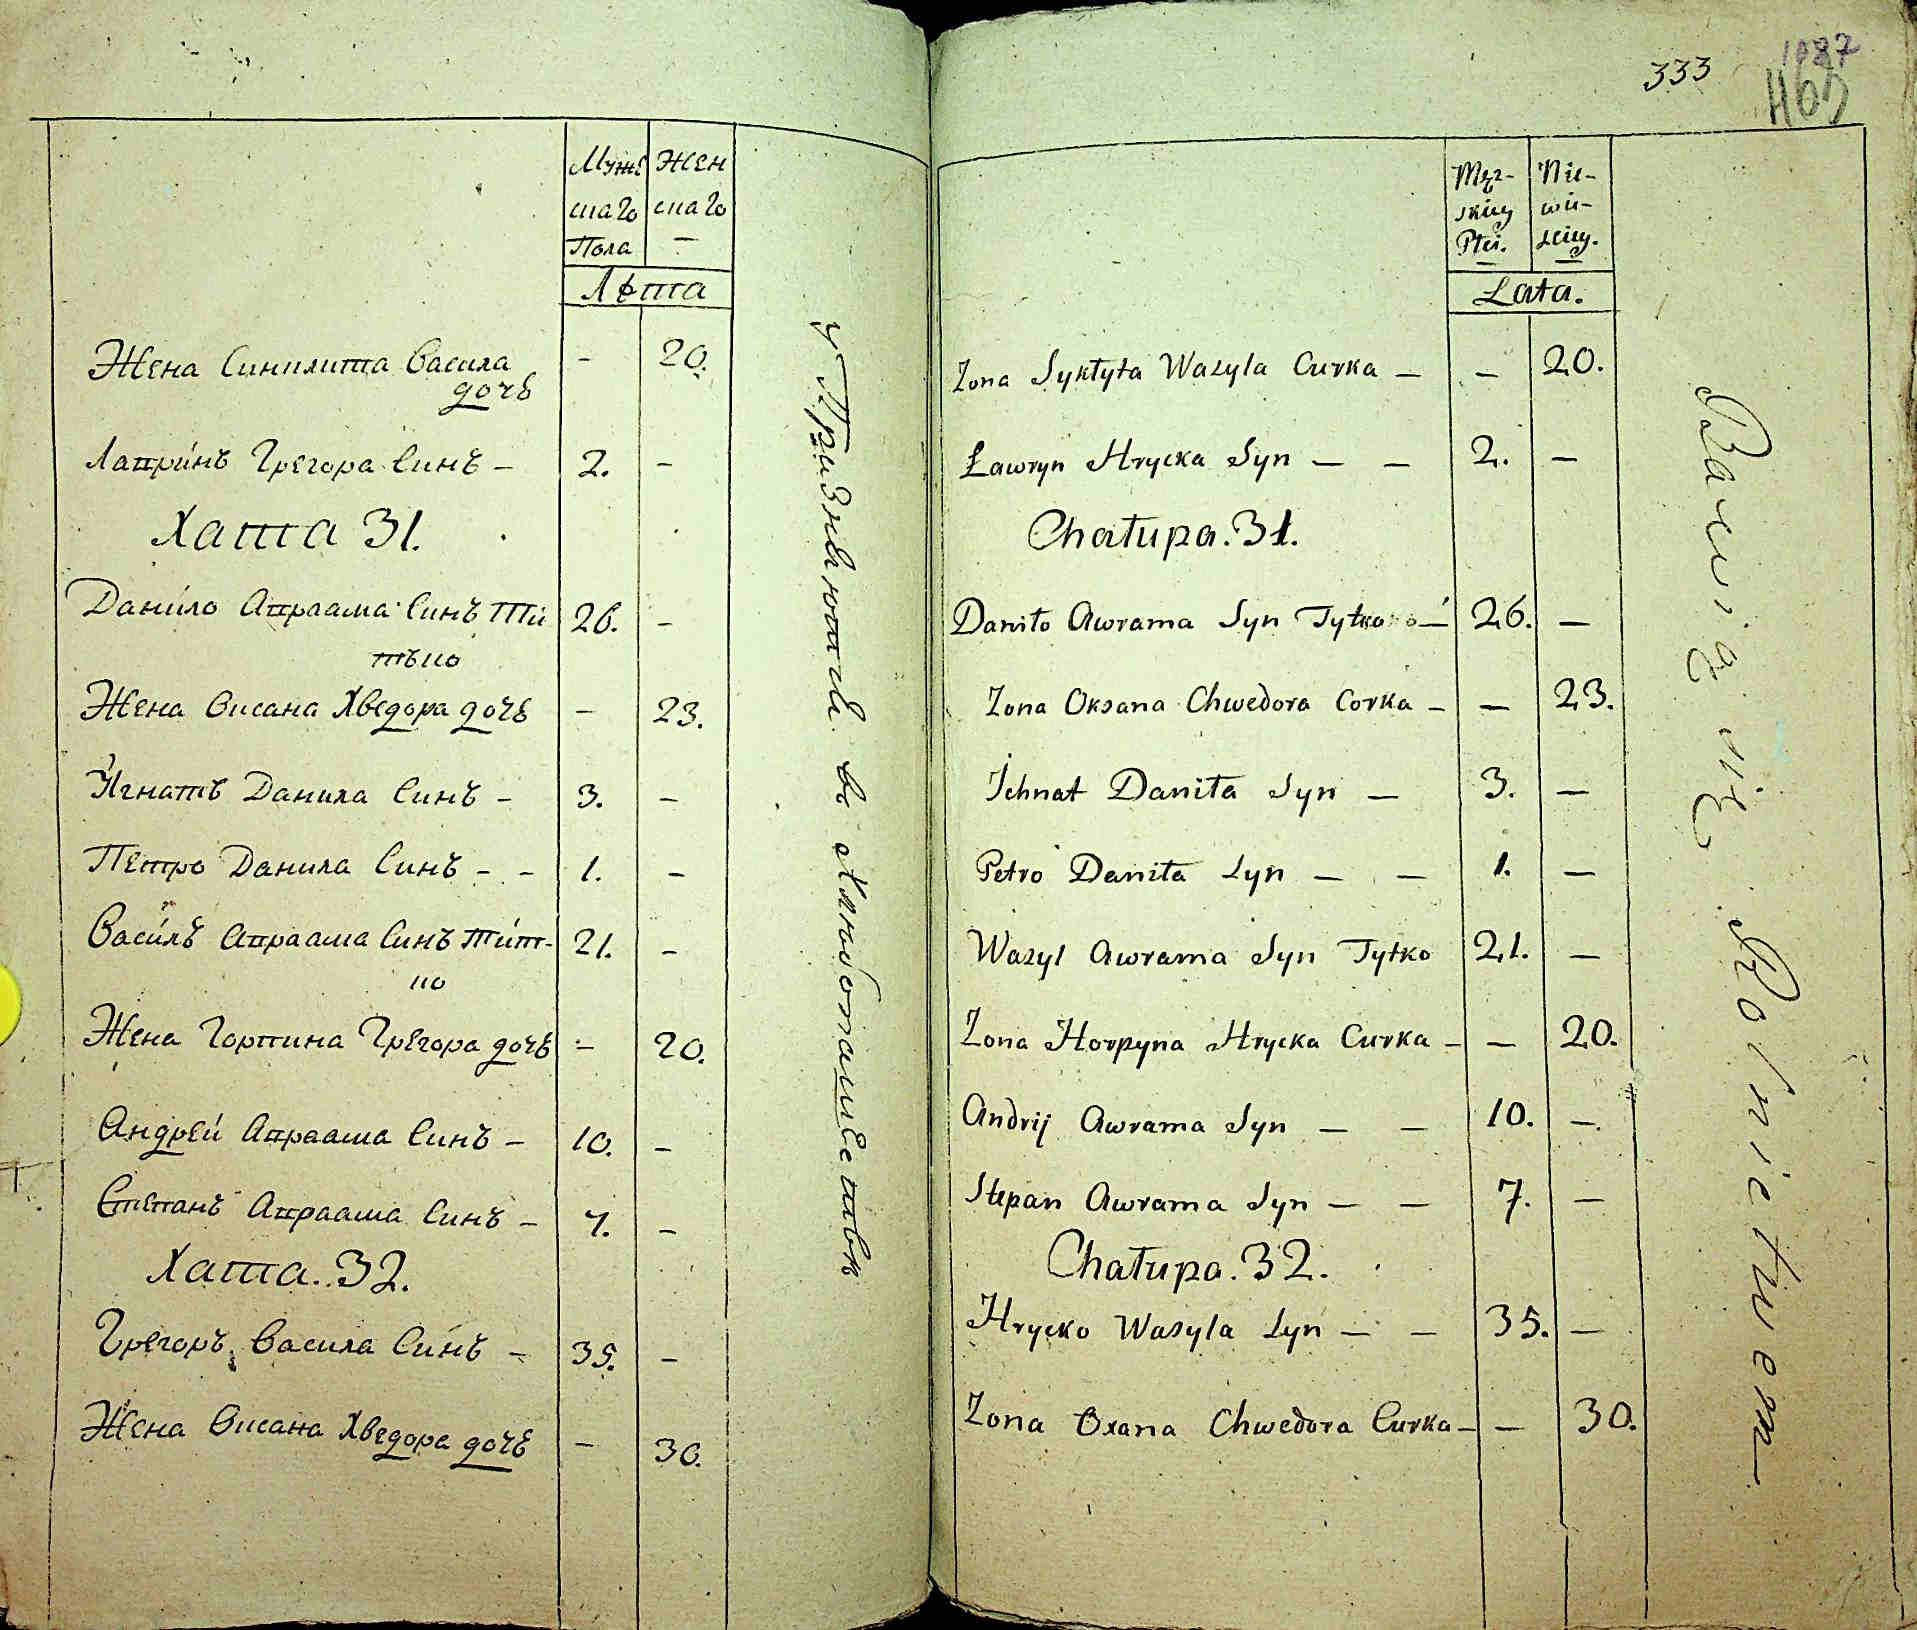 Мужескаго Пола
Женскаго —
Лѣта
Жена Синклита Васила дочь - 20.
Лавринъ Грегора Синъ - 2. -
Хата 31.
Данило Авраама Синъ Титько 26. -
Жена Оксана Хведора дочь - 23.
Игнатъ Данила Синъ - 3. -
Петро Данила Синъ - - 1. -
Василь Авраама Синъ Титко 21. -
Жена Горпина Грегора дочь - 20.
Андрей Авраама Синъ - 10. -
Степанъ Авраама Синъ - 7. -
Хата. 32.
Грегоръ Васила Синъ - 35. -
Жена Оксана Хведора дочь - 30.
въ
333
1087
Męzskiey Płci.
Niewieściey.
Lata.
Zona Sykłyta Wasyla Curka — — 20.
Ławryn Hrycka Syn — — 2. —
Chałupa. 31.
Daniło Awrama Syn Tytko — 26. —
Zona Oksana Chwedora Corka — — 23.
Ichnat Daniła Syn — 3. —
Petro Daniła Syn — — 1. —
Wasyl Awrama Syn Tytko 21. —
Zona Horpyna Hrycka Curka — — 20.
Andrij Awrama Syn — — 10. —
Stepan Awrama Syn — — 7. —
Chałupa. 32.
Hrycko Wasyla Syn — — 35. —
Zona Oxana Chwedora Curka — — 30.
Bawią się Rolnictwem